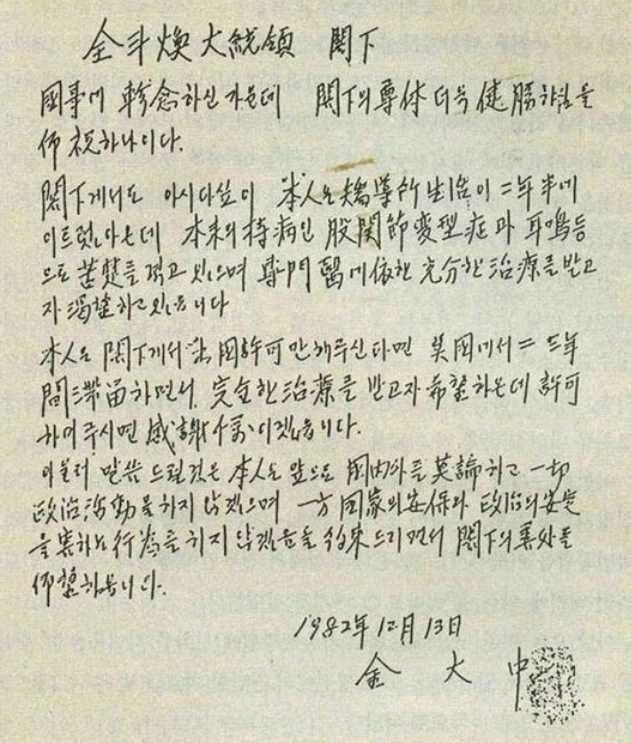 全斗煥 大統領 閣下
國事에 軫念하신가운데 閣下의 尊体 더욱 健勝하심을
仰祝하나이다.
閣下께서도 아시다싶이 本人은 矯導所生活이 二年半에
이르렀아온데 本來의 持病인 股關節変型症과 耳鳴等
으로 苦楚를 격고 있으며 専門醫에 依한 充分한 治療를 받고
자 渴望하고있읍니다
本人은 閣下께서 出國許可만 해주신다면 美國에서 二三年
間 滯留하면서 完全한 治療를 받고자 希望하온데 許可
하여주시면 感謝千萬이겠읍니다.
아울러 말씀 드릴것은 本人은 앞으로 國內外를 莫論하고 一切
政治活動을 하지 않겠으며 一方 國家의 安保와 政治의 安定
을 害하는 行為를 하지 않겠음을 約束드리면서 閣下의 善處를
仰望하옵니다.
1982年 12月 13日
金 大 中